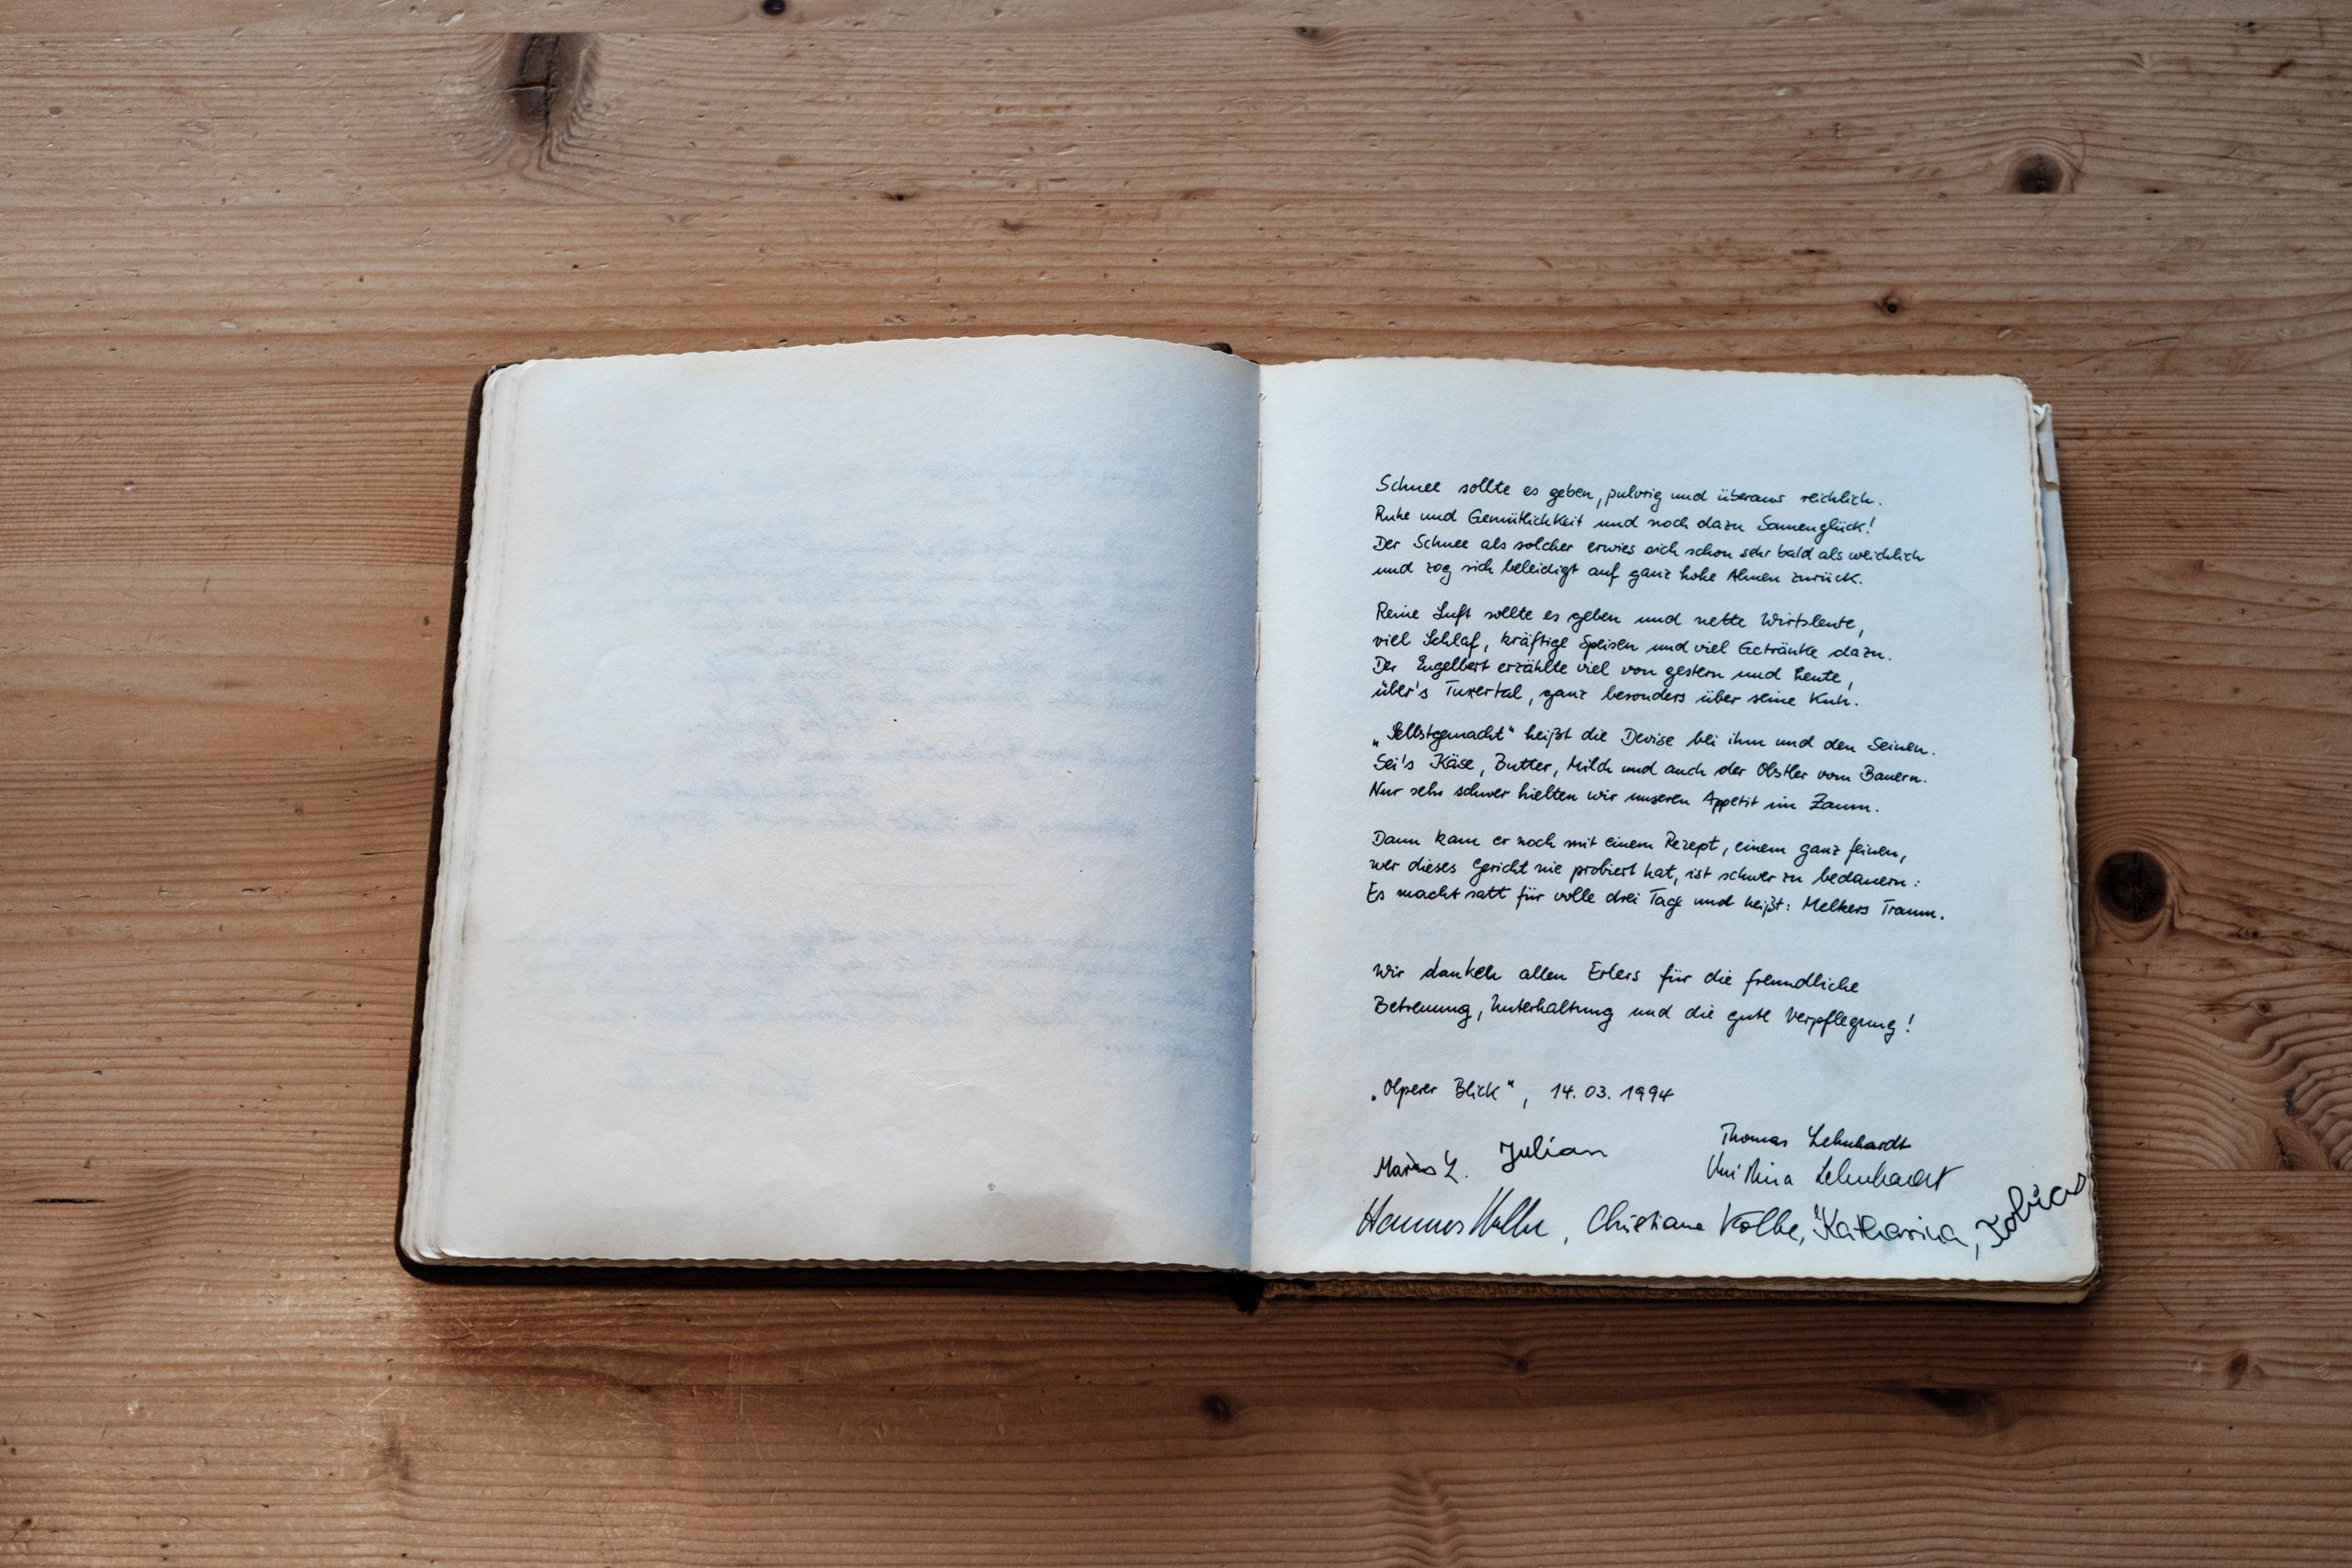 Schnee sollte es geben, pulvrig und überaus reichlich.
Ruhe und Gemütlichkeit und noch dazu Sonnenglück!
Der Schnee als solcher erwies sich schon sehr bald als weichlich
und zog sich beleidigt auf ganz hohe Almen zurück.
Reine Luft sollte es geben und nette Wirtsleute,
viel Schlaf, kräftige Speisen und viel Getränke dazu.
Der Engelbert erzählte viel von gestern und heute,
über's Tuxertal, ganz besonders über seine Kuh.
„Selbstgemacht“ heißt die Devise bei ihm und den Seinen.
Sei's Käse, Butter, Milch und auch der Obstler vom Bauern.
Nur sehr schwer hielten wir unseren Appetit im Zaum.
Dann kam er noch mit einem Rezept, einem ganz feinen,
wer dieses Gericht nie probiert hat, ist schwer zu bedauern:
Es macht satt für volle drei Tage und heißt: Melkers Traum.
Wir danken allen Erlers für die freundliche
Betreuung, Unterhaltung und die gute Verpflegung!
„Olperer Blick“, 14.03.1994
Thomas Lehnhardt
L. Julian
Lehnhardt
Hannes Kolbe, Christiane Kolbe, Katharina, Tobias